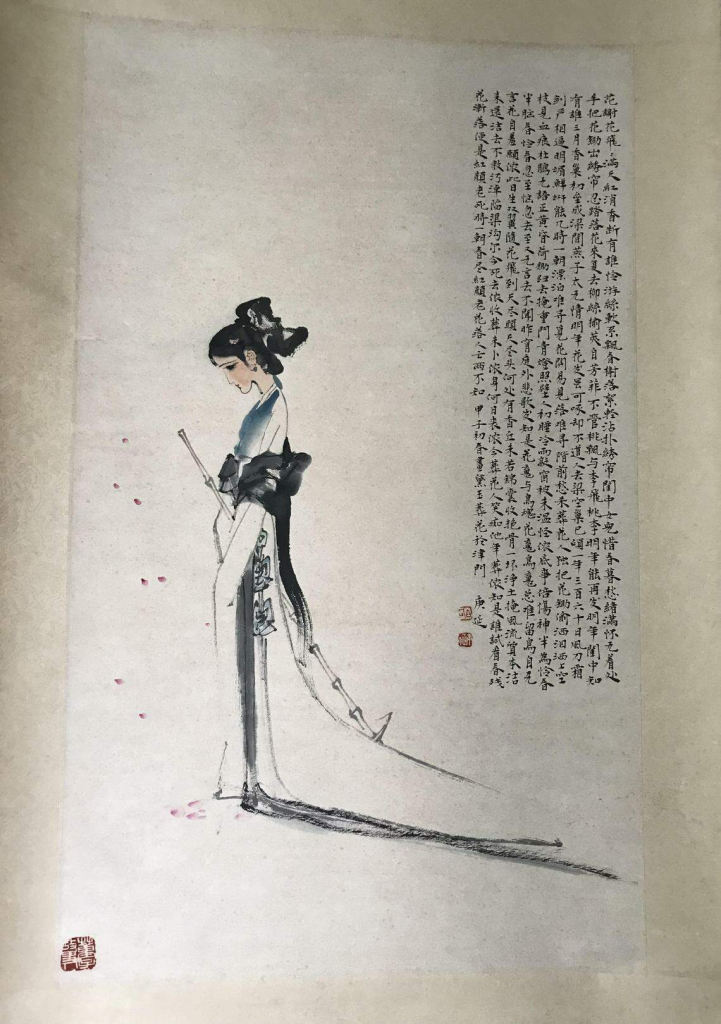 花謝花飛々滿天紅消香斷有誰怜游絲軟系飄春榭落絮輕沾扑綉帘閨中女兒惜春暮愁緒滿怀无着处
手把花鋤出綉帘忍踏落花來复去柳絲榆莢自芳菲不管桃飄与李飛桃李明年能再发明年閨中知
有誰三月香巢初垒成梁間燕子太无情明年花发虽可啄却不道人去梁空巢已傾一年三百六十日風刀霜
剑严相逼明媚鮮妍能几時一朝漂泊难寻覓花開易見落难寻階前愁杀葬花人独把花鋤偷洒泪洒上空
枝見血痕杜鵑无語正黄昏荷鋤归去掩重門青燈照壁人初睡冷雨敲窗被未温怪侬底事倍傷神半為怜春
半惱春怜春忽至惱忽去至又无言去不聞昨宵庭外悲歌发知是花魂与鳥魂花魂鳥魂总难留鳥自无
言花自羞願侬此日生双翼隨花飛到天尽頭天尽头何处有香丘未若錦囊收艳骨一抔淨土掩風流質本洁
來還洁去不教污淖陷渠沟尔今死去侬收葬未卜侬身何日丧侬今葬花人笑痴他年葬侬知是誰試看春残
花漸落便是紅顏老死時一朝春尽紅顏老花落人亡兩不知 甲子初春畫黛玉葬花於津門 庚延